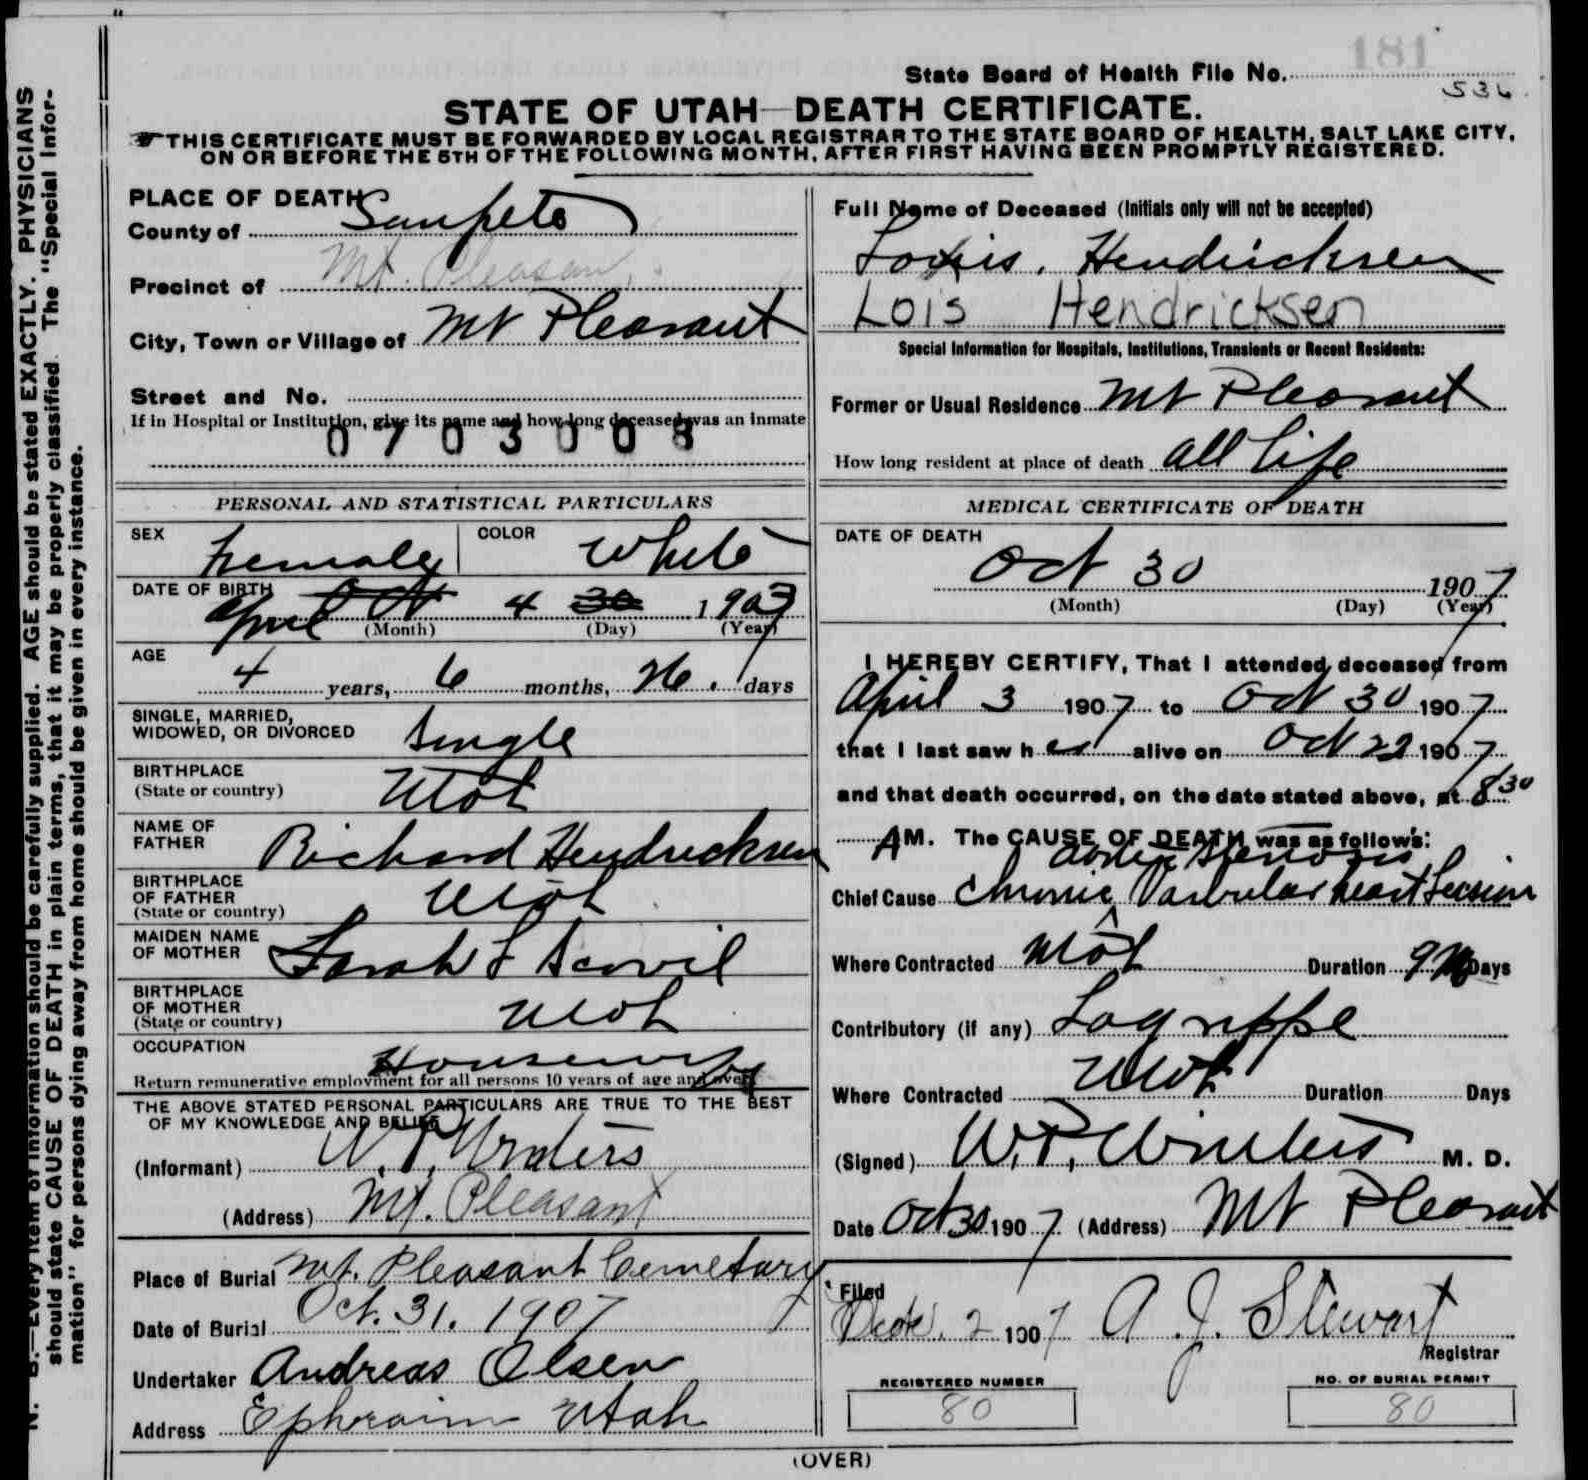 181
State Board of Health File No. 536
STATE OF UTAH—DEATH CERTIFICATE.
THIS CERTIFICATE MUST BE FORWARDED BY LOCAL REGISTRAR TO THE STATE BOARD OF HEALTH, SALT LAKE CITY,
ON OR BEFORE THE 5TH OF THE FOLLOWING MONTH, AFTER FIRST HAVING BEEN PROMPTLY REGISTERED.
N. B.—Every item of information should be carefully supplied. AGE should be stated EXACTLY. PHYSICIANS
should state CAUSE OF DEATH in plain terms, that it may be properly classified. The "Special Infor-
mation" for persons dying away from home should be given in every instance.
PLACE OF DEATH
County of Sanpete
Precinct of Mt. Pleasant
City, Town or Village of Mt Pleasant
Street and No.
If in Hospital or Institution, give its name and how long deceased was an inmate
0703008
PERSONAL AND STATISTICAL PARTICULARS
SEX Female COLOR White
DATE OF BIRTH April Oct 4 30 1903
(Month) (Day) (Year)
AGE
4 years, 6 months, 26 days
SINGLE, MARRIED,
WIDOWED, OR DIVORCED Single
BIRTHPLACE
(State or country) Utah
NAME OF
FATHER Richard Hendricksen
BIRTHPLACE
OF FATHER
(State or country) Utah
MAIDEN NAME
OF MOTHER Sarah L Scovil
BIRTHPLACE
OF MOTHER
(State or country) Utah
OCCUPATION Housewife
Return remunerative employment for all persons 10 years of age and over
THE ABOVE STATED PERSONAL PARTICULARS ARE TRUE TO THE BEST
OF MY KNOWLEDGE AND BELIEF
(Informant) W. P. Winters
(Address) Mt. Pleasant
Place of Burial Mt. Pleasant Cemetary
Date of Burial Oct. 31. 1907
Undertaker Andreas Olsen
Address Ephraim Utah
Full Name of Deceased (Initials only will not be accepted)
Hendricksen
Lois Hendricksen
Special Information for Hospitals, Institutions, Transients or Recent Residents:
Former or Usual Residence Mt Pleasant
How long resident at place of death all life
MEDICAL CERTIFICATE OF DEATH
DATE OF DEATH
Oct 30 1907
(Month) (Day) (Year)
I HEREBY CERTIFY, That I attended deceased from
April 3 1907 to Oct 30 1907
that I last saw her alive on Oct 22 1907
and that death occurred, on the date stated above, at 8 30
AM. The CAUSE OF DEATH was as follows:
aortic stenosis
Chief Cause Chronic Valvular heart Lession
Where Contracted Utah Duration 9 M Days
Contributory (if any) Lagrippe
Where Contracted Utah Duration Days
(Signed) W. P. Winters M. D.
Date Oct 30 1907 (Address) Mt Pleasant
Filed
2 1907 A. J. Stewart
Registrar
REGISTERED NUMBER
80
NO. OF BURIAL PERMIT
80
(OVER)